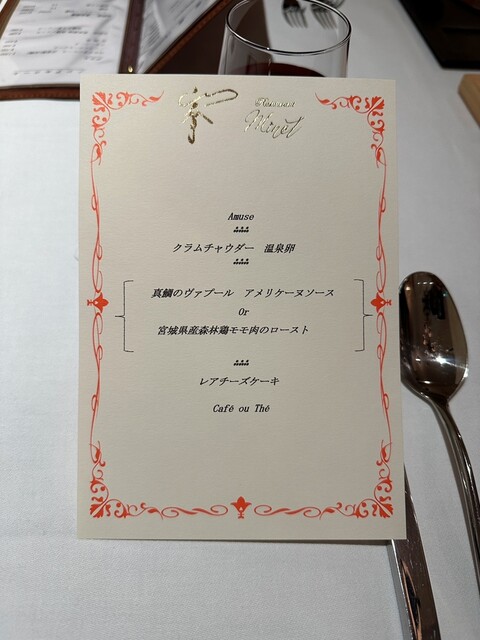 Restaurant
Amuse
クラムチャウダー　温泉卵
真鯛のヴァプール　アメリケーヌソース
Or
宮城県産森林鶏モモ肉のロースト
レアチーズケーキ
Café ou Thé